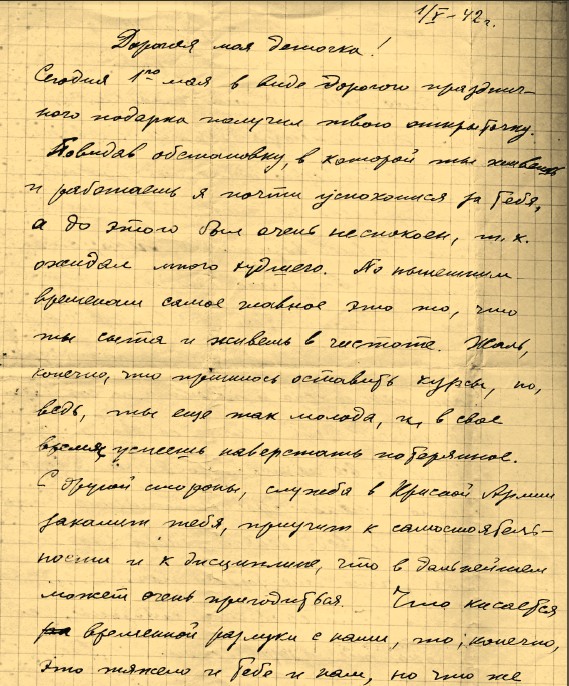 1/V-42 г.
Дорогая моя деточка!
Сегодня 1го мая в виде дорогого празднич-
ного подарка получил твою открыточку.
Повидав обстановку, в которой ты живешь
и работаешь я почти успокоился за тебя,
а до этого был очень неспокоен, т.к.
ожидал много худшего. По нынешним
временам самое главное это то, что
ты сыта и живешь в чистоте. Жаль,
конечно, что пришлось оставить курсы, но,
ведь, ты еще так молода, и, в свое
время, успеешь наверстать потерянное.
С другой стороны, служба в Красной Армии
закалит тебя, приучит к самостоятель-
ности и к дисциплине, что в дальнейшем
может очень пригодиться. Что касается
временной разлуки с нами, то, конечно,
это тяжело и тебе и нам, но что же